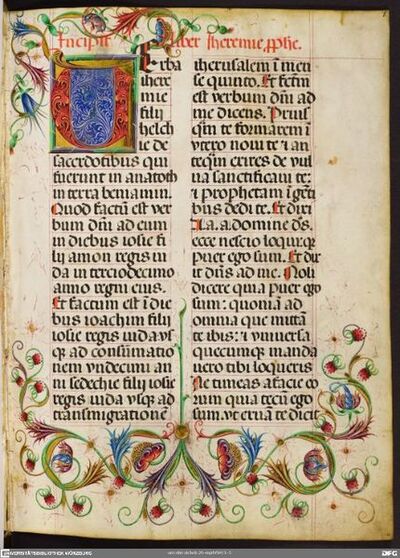 Incipit liber iheremie pphe.
Erba
ihere
mie
filij
helch
ie de
sacerdotibus qui
fuerunt in anatoth
in terra beniamin.
Quod factū est ver
bum dm̄ ad eum
in diebus iosie fi
lij amon regis iu
da in terciodecimo
anno regni eius.
Et factum est ī die
bus ioachim filij
iosie regis iuda vs
qꝫ ad consumatio
nem vndecimi an
ni sedechie filij iosie
regis iuda vsqꝫ ad
transmigrationē
iherusalem ī men
se quinto. Et factm̄
est verbum dm̄ ad
me dicens. Priusqͣ
te formarem ī
vtero noui te ⁊ an
teqͣm exires de vul
ua sanctificaui te:
⁊ prophetam ī gēti
bus dedi te. Et dixi
A.a.a. domine ds̄.
ecce nescio loqui: qꝛ
puer ego sum. Et dix
it dn̄s ad me. Noli
dicere quia puer ego
sum: quoniā ad
omnia que mittā
te ibis: ⁊ vniuersa
quecumqꝫ manda
uero tibi loqueris
Ne timeas a facie eo
rum quia tecū ego
sum vt eruā te dicit
UNIVERSITÄTSBIBLIOTHEK WÜRZBURG
DFG